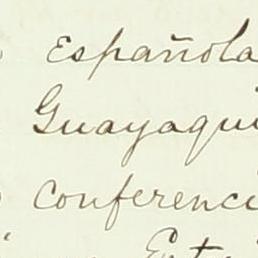 Española
Guayaqui
conferenci